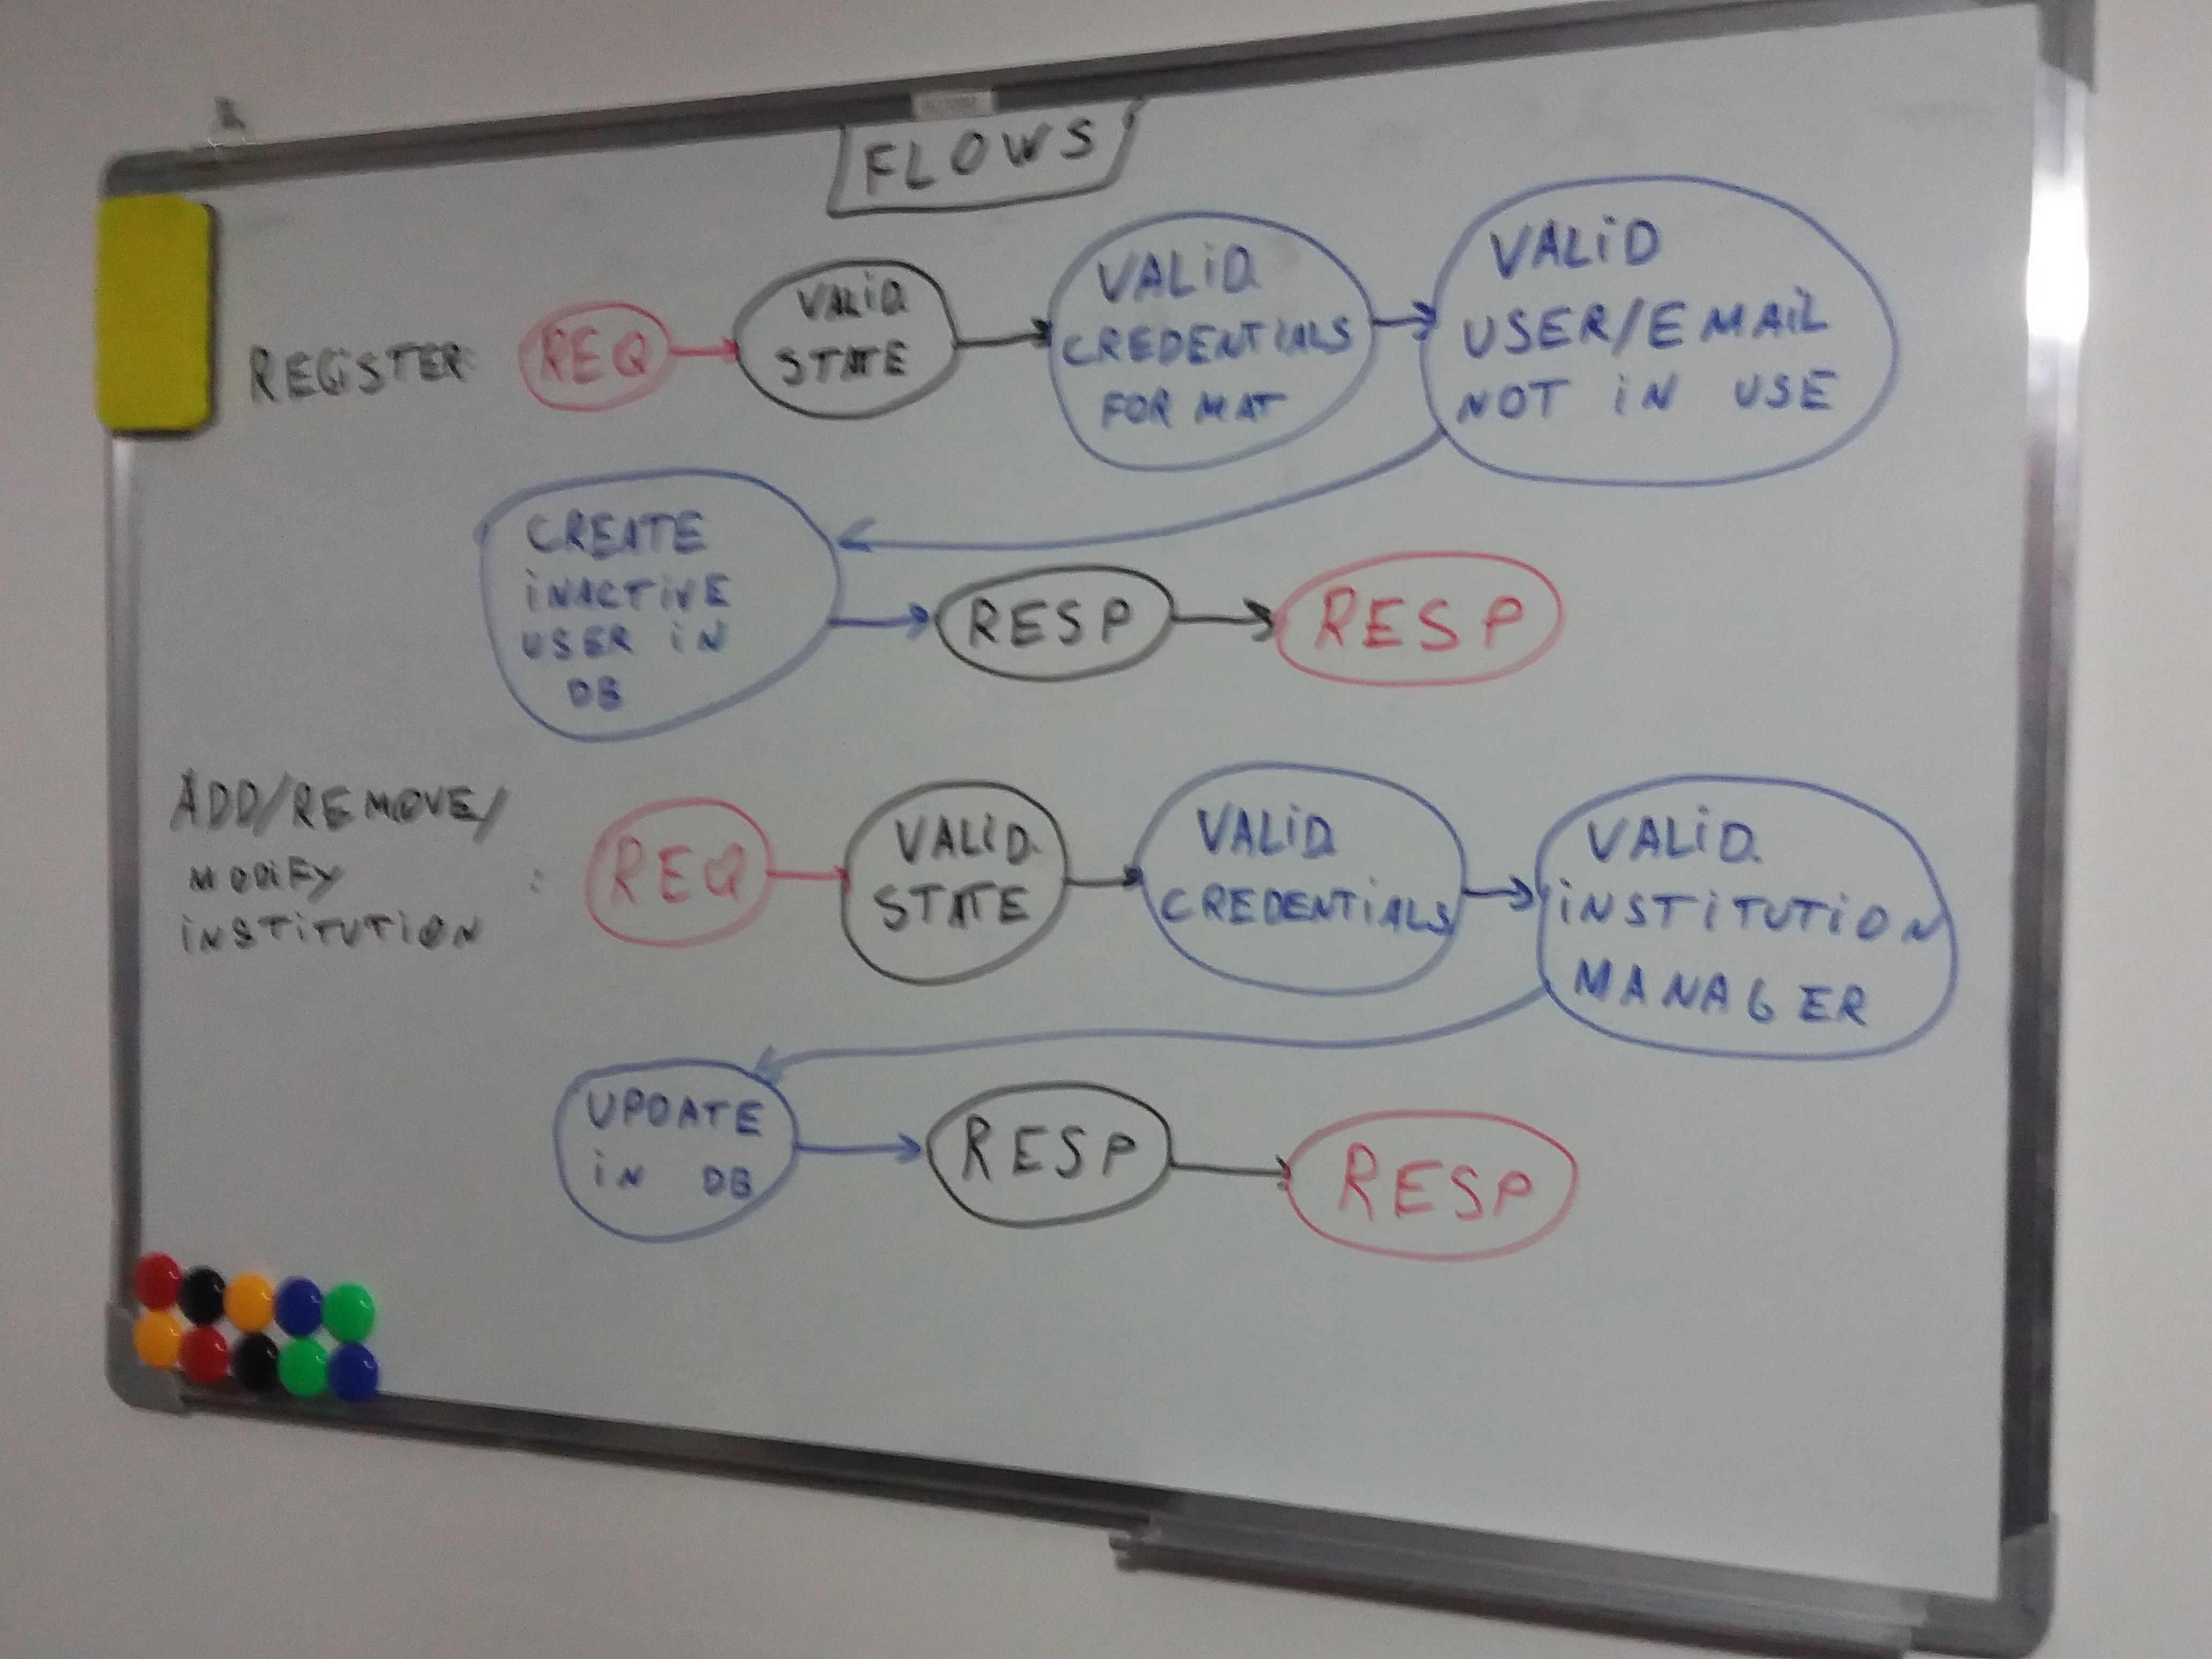 FLOWS
REGISTER:
REQ
VALID.
STATE
VALID.
CREDENTIALS
FORMAT
VALID
USER/EMAIL
NOT IN USE
CREATE
INACTIVE
USER IN
DB
RESP
RESP
ADD/REMOVE/
MODIFY
INSTITUTION
:
REQ
VALID.
STATE
VALID.
CREDENTIALS
VALID.
INSTITUTION
MANAGER
UPDATE
IN DB
RESP
RESP